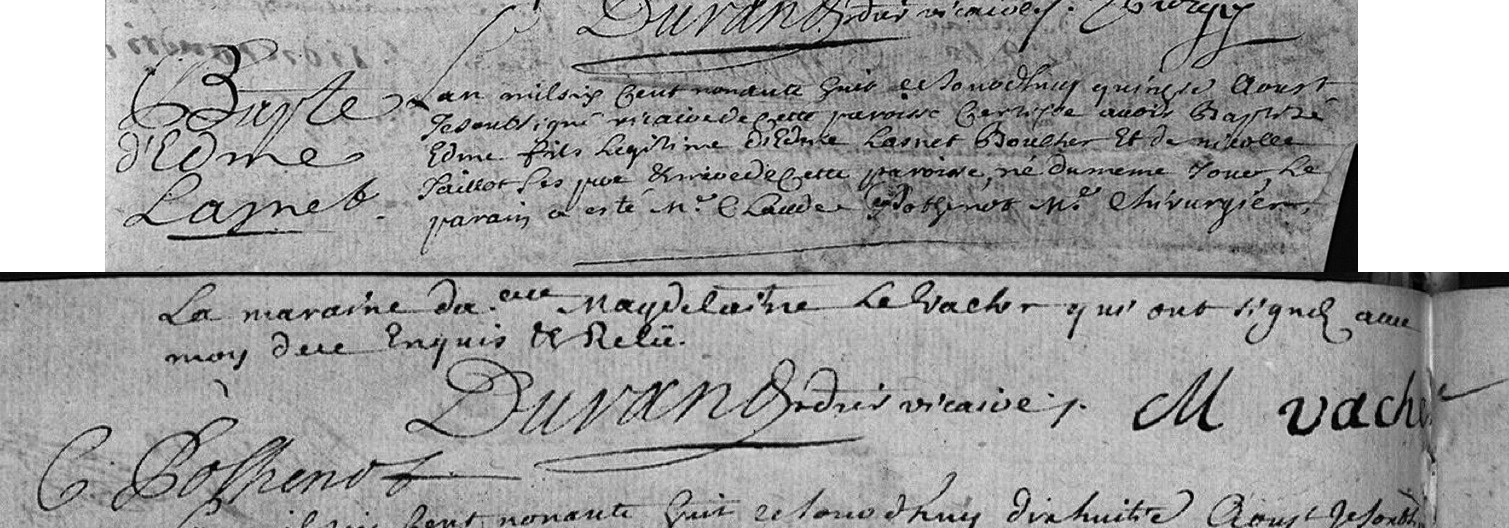 Durand prdre vicaire
Bapte
d'Edme
Lasnet
Lan milsix Cent nonante huit cejourdhuy quinze Aoust
Jesoubsigné vicairedecette paroisse Certiffie avoir Baptizé
Edme fils legitime d'Edme Lasnet Boulher Et de nicolle
Jaillot ses pere & mèredecette paroisse, né dumeme Jour, Le
parain a esté Mre Claude Pothenot Me Chirurgien,
La maraine da.elle Magdelaine Le Vacher qui ont signé avec
moy dece Enquis & Relu.
Durand prdre vicaire
M vache
C Pothenot
Cent nonante huit cejourdhuy dixhuite Aoust Jesoub